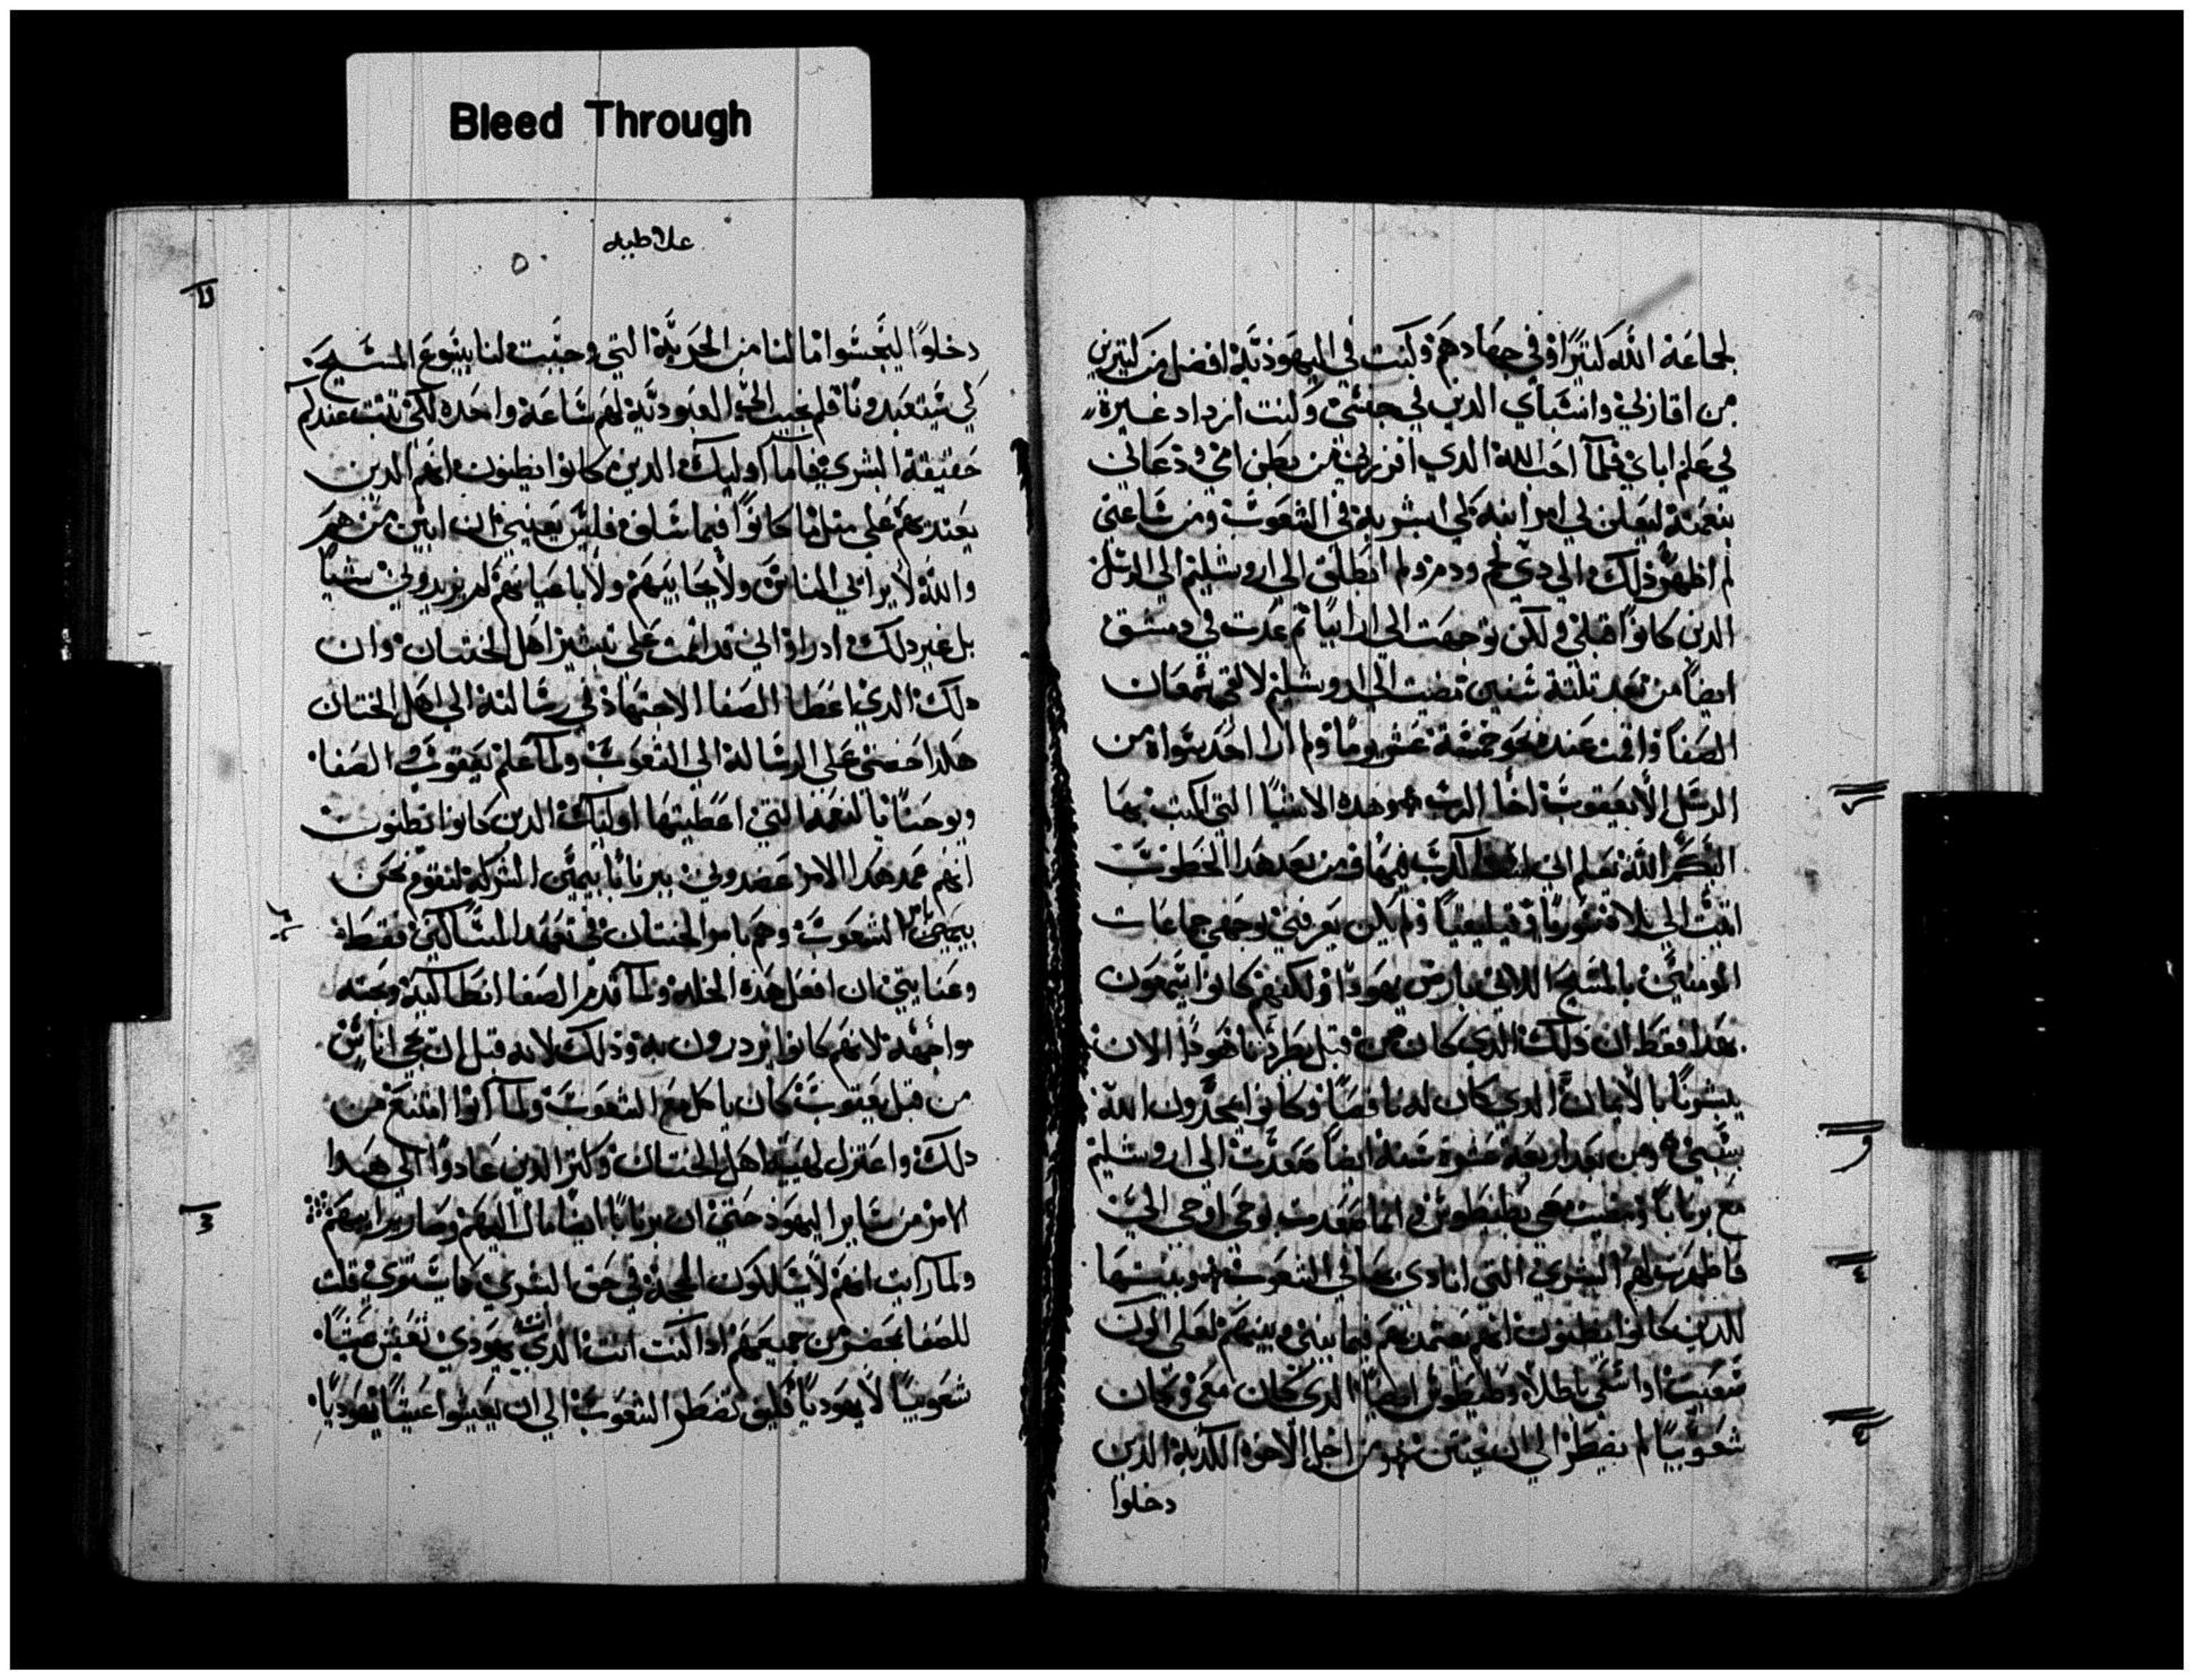 Bleed Through
لجماعة الله كتيرًا وفي جهادهم وكنت في اليهودية افضل من كتيرين
من اقاربي وانسباي الدين في جنسي وكنت ازداد غيرة
في علم اباي فلما احب الله الدي افرزني من بطن امي ودعاني
بنعمته ليعلن لي امر ابنه لكي ابشر به في الشعوب ومن ساعتي
لم اظهر ذلك الي دي لحم ودم ولم انطلق الي اروشليم الي الرسل
الدين كانوا قبلي ولكن توجهت الي ارابيا ثم عدت في دمشق
ايضًا من بعد تلتة سنين مضيت الي اروشليم لالقي شمعان
الصفا واقمت عنده نحو خمسة عشر يومًا ولم ارا احد سواه من
الرسل الا يعقوب اخا الرب وهده الاشيا التي اكتب بها
اليكم الله يعلم اني لست اكدب فيها ومن بعد هدا الخطوب
اتيت الي بلاد سوريا وقيليقيا ولم يكن يعرفني وجهي جماعات
المومنين بالمسيح اللاتي بارض يهودا ولكنهم كانوا يسمعون
بهدا فقط ان ذلك الدي كان من قبل يطردنا هودا الان
يبشرنا بالايمان الدي كان له ناقضًا وكانوا يمجدون الله
بسببي ومن بعد اربعة عشرة سنة ايضًا صعدت الي اروشليم
مع برنابا ومضيت معي بطيطوس وانما صعدت بوحي اوحي الي
فاظهرت لهم البشري التي انادي بها في الشعوب وبينتها
للدين كانوا يظنون انهم يعتمد بهم فيما بيني وبينهم لعلي اكون
سعيت او اسعي باطلا وطيطوس ايضًا الدي كان معي وكان
شعوبيًا لم يضطر الي ان يختتن ومن اجل الاخوه الكدبة الدين
دخلوا
غلاطيه
دخلوا ليجسوا ما لنا من الحرية التي وجبت لنا بيسوع المسيح
لكي يستعبدونا فلم نجيب الي العبودية لهم ساعة واحده لكي تتبت عندكم
حقيقة البشري فاما اوليك الدين كانوا يظنون انهم الدين
يعتد بهم علي مثل ما كانوا فيما سلف فليس يعنيني ان ابين من هم
والله لا يرائي الناس ولا يحابيهم ولا باعيانهم لم يزيدوني شيا
بل غير دلك اد راوا اني قد ائتمنت علي تبشير اهل الختان وان
دلك الدي اعطا الصفا الاجتهاد في رسالته الي اهل الختان
هكدا حضني علي الرسالة الي الشعوب ولما علم يعقوب والصفا
ويوحنا بالنعمة التي اعطيتها اوليك الدين كانوا يظنون
انهم عمد هدا الامر عضدوني وبرنابا بيمين الشركة لنقوم نحن
الشعوب وهم بامر الختان في تعهد المساكين فقط
وعنايتي ان افعل هده الخلة ولما قدم الصفا انطاكية وبخته
مواجهة لانهم كانوا يزدرون به وذلك لانه قبل ان يجي اناس
من قبل يعقوب كان ياكل مع الشعوب ولما اتوا امتنع من
دلك واعتزل لهيبة اهل الختان وكثر الدين عادوا الي هدا
الامر من ساير اليهود حتي ان برنابا ايضًا مال اليهم وصار يرايهم
ولما رايت انهم لا يسلكون المحجة في حق البشري كما يستوي قلت
للصفا بمحضر من جميعهم ادا كنت انت الدي يهودي تعيش عيشًا
شعوبيًا لا يهوديًا فكيف تضطر الشعوب الي ان يعيشوا عيشًا يهوديًا